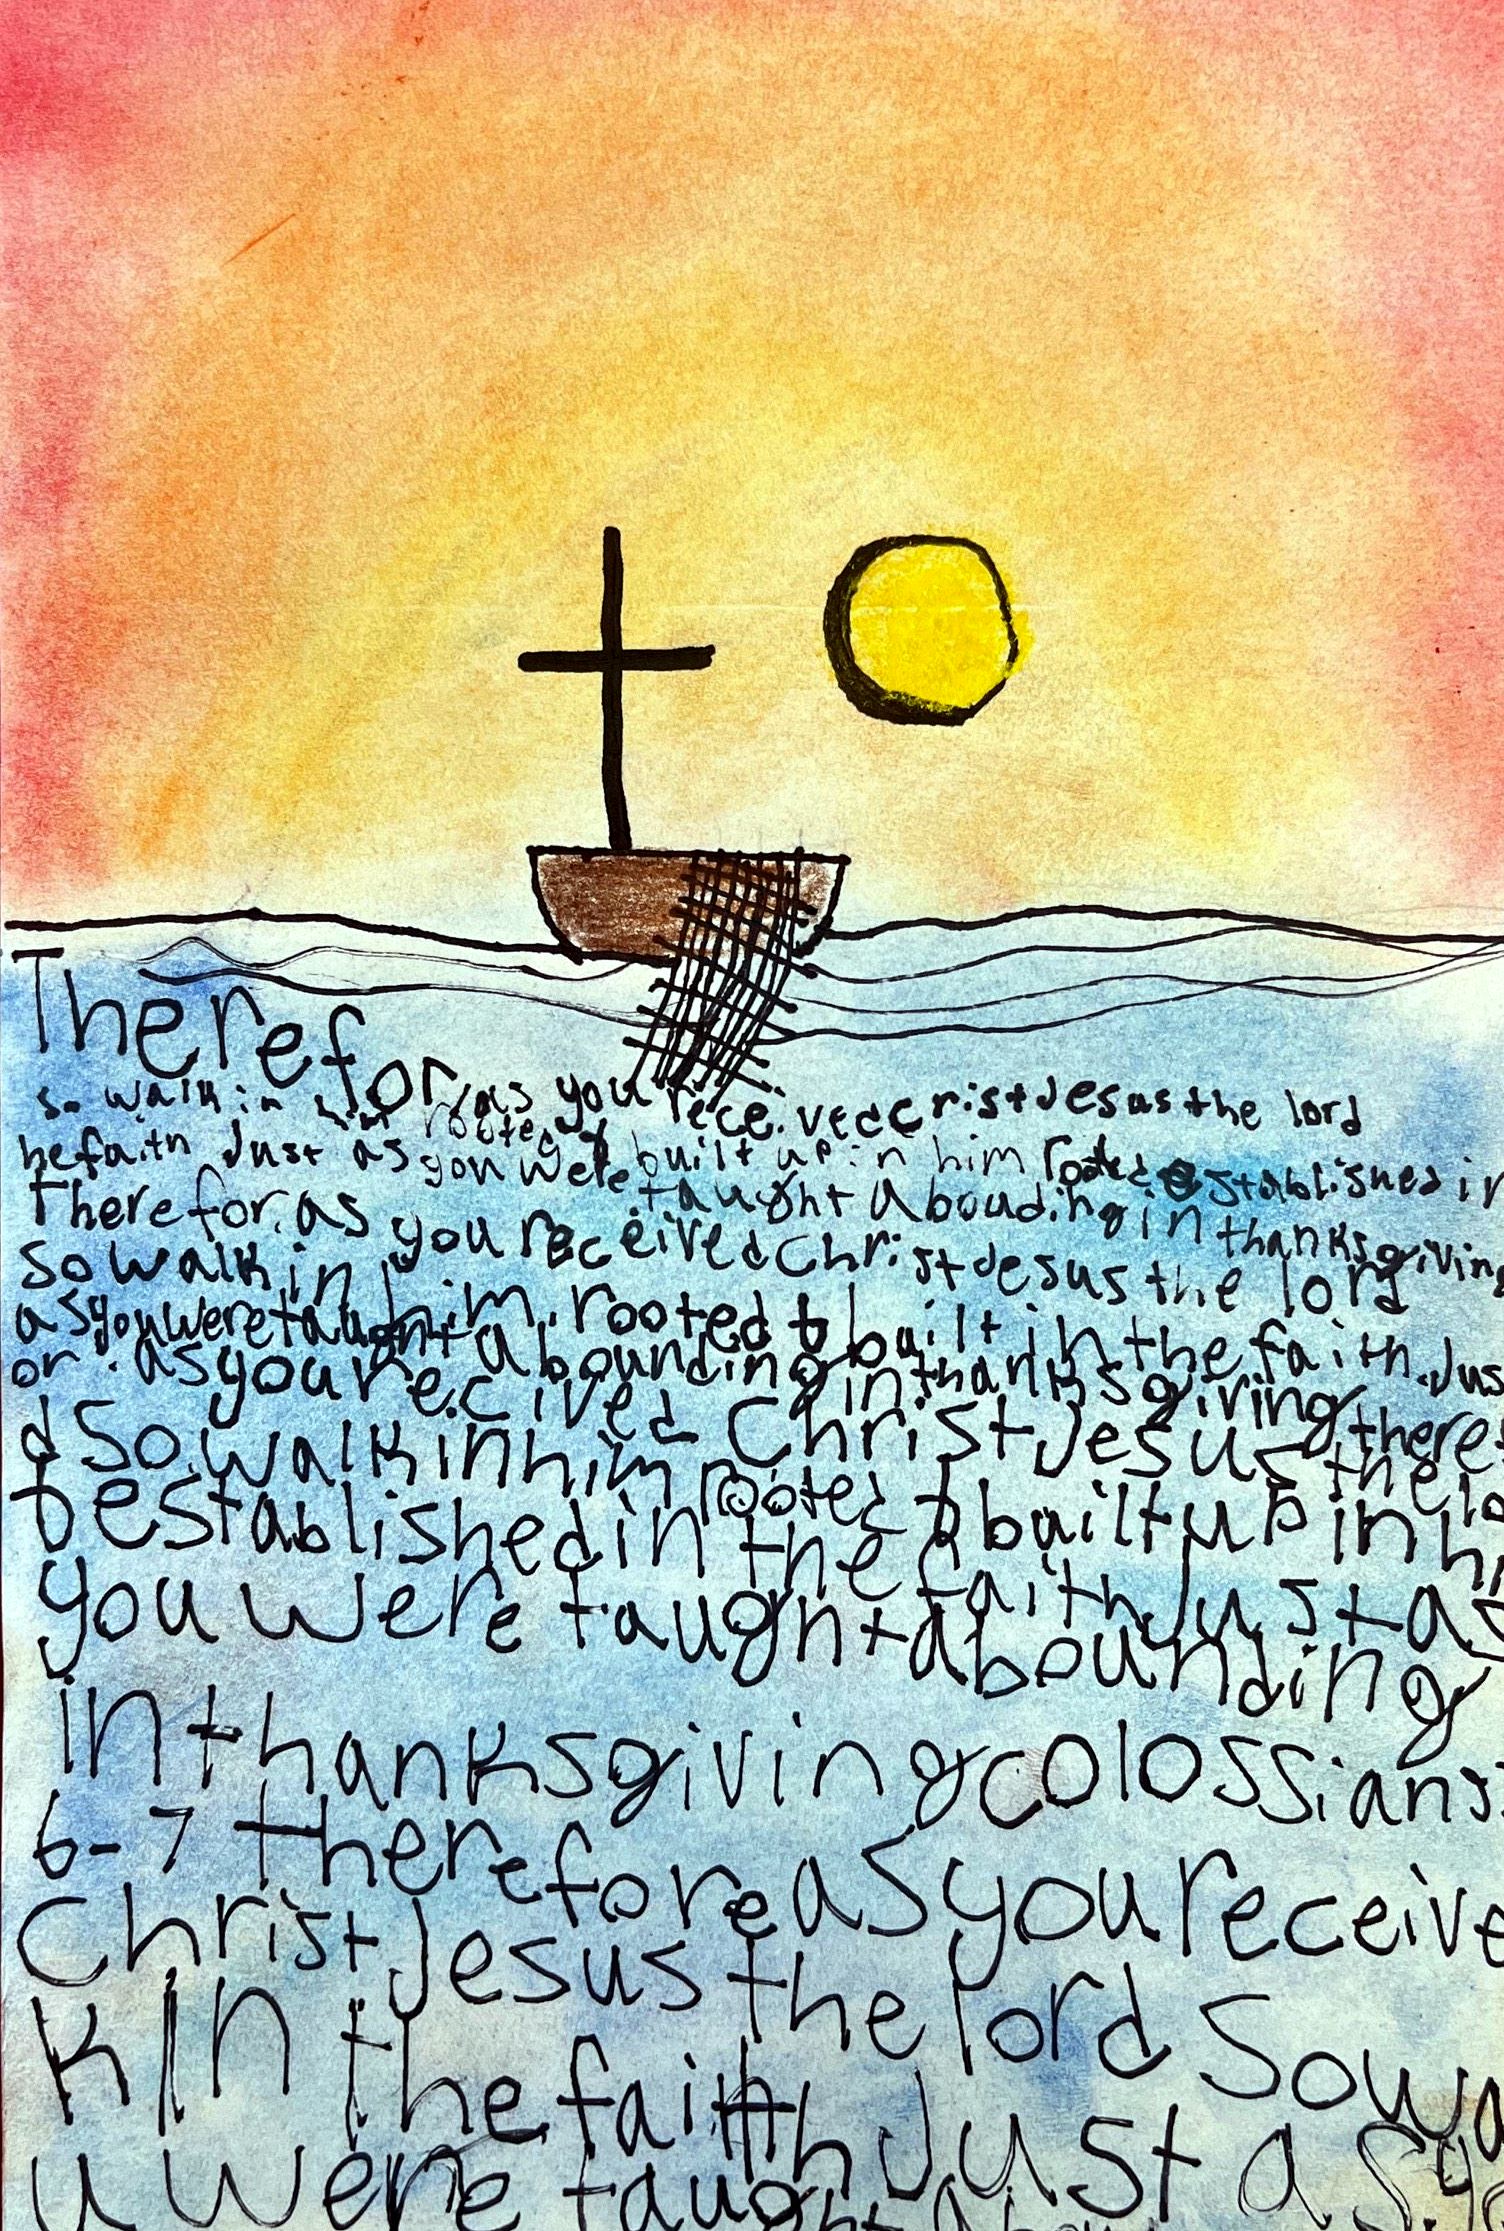 Therefor, as you received cristJesus the lord
so walk in him rooted & built up in him rooted established in
hefaith Just as you were taught aboudinging in thanksgiving
Therefor. as you received Christ Jesus the lord
So walk in him. rooted & built in the faith. Jus
as you were taught abounding in thanksgiving theref
or . as you recived Christ Jesus the lo
d So. walk in him rooted & built up in hi
& established in the faith Just as
you were taught abounding
in thanksgiving colossians:
6-7 therefore as you receive
Christ Jesus the lord So wa
k In the faith Just as yo
u were taught abou